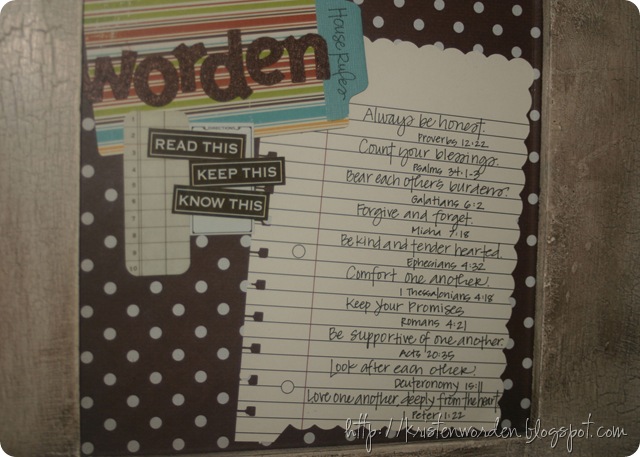 worden
House Rules
READ THIS
KEEP THIS
KNOW THIS
Always be honest.
Proverbs 12:22
Count your blessings.
Psalms 34:1-3
Bear each others burdens.
Galatians 6:2
Forgive and forget.
Micha 7:18
Be kind and tender hearted.
Ephesians 4:32
Comfort one another.
1 Thessalonians 4:18
Keep Your Promises
Romans 4:21
Be supportive of one another.
Acts 20:35
Look after each other.
Deuteronomy 15:11
Love one another, deeply from the heart
Peter 1:22
http://kristenworden.blogspot.com